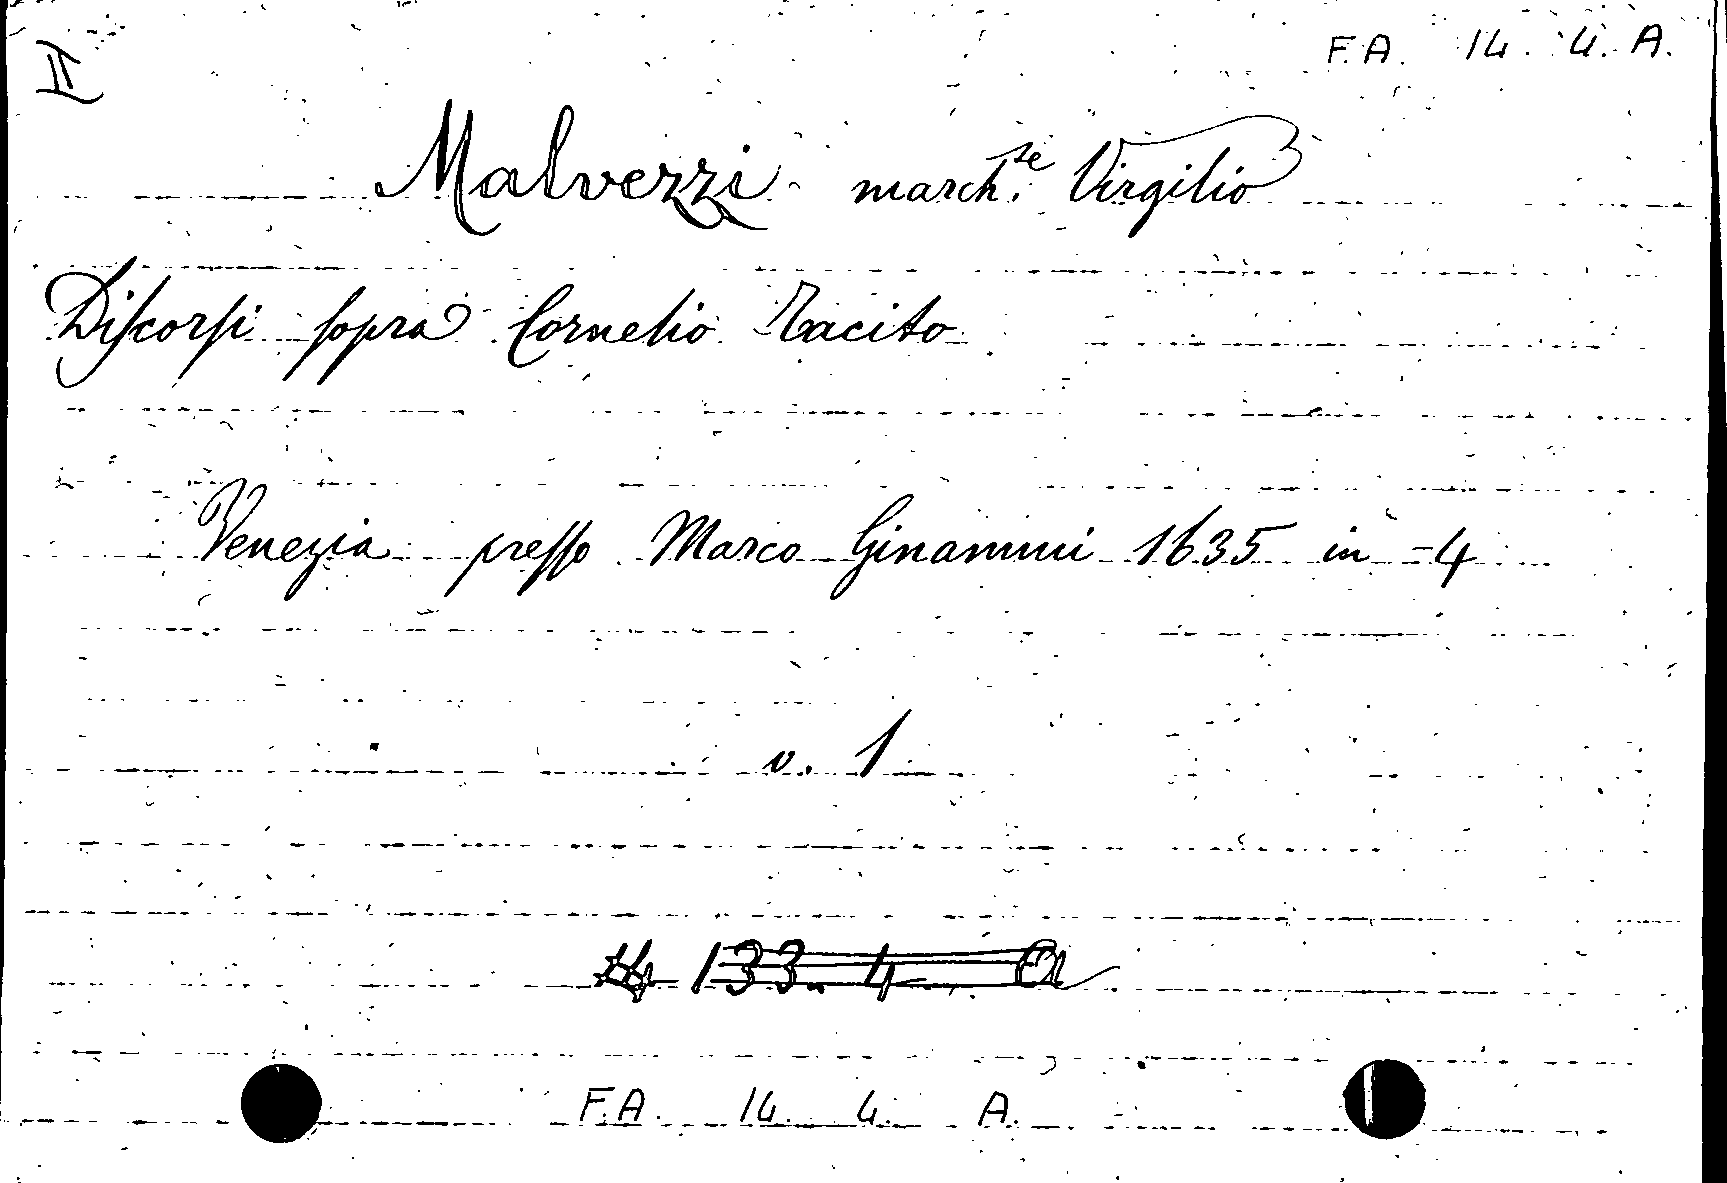 II
F. A. 14. 4. A.
Malvezzi march.se Virgilio
Discorsi sopra Cornelio Tacito
Venezia presso Marco Ginammi 1635 in-4
v. 1
133. 4. A
F. A. 14. 4. A.